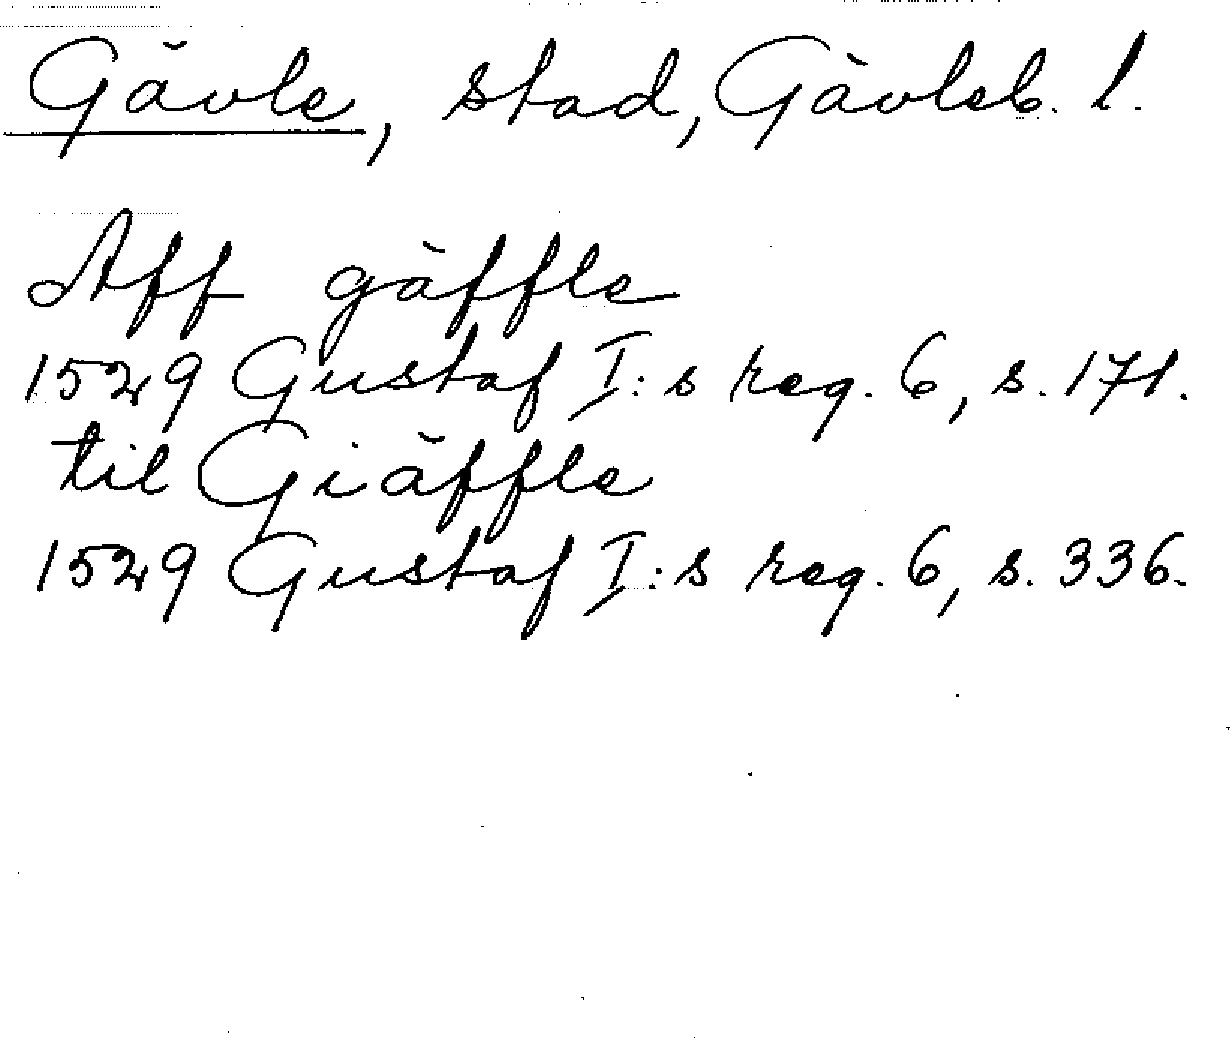 Gävle, stad, Gävleb. l.
Aff gäffle
1529 Gustaf I:s reg. 6, s. 171.
til Giäffle
1529 Gustaf I:s reg. 6, s. 336.